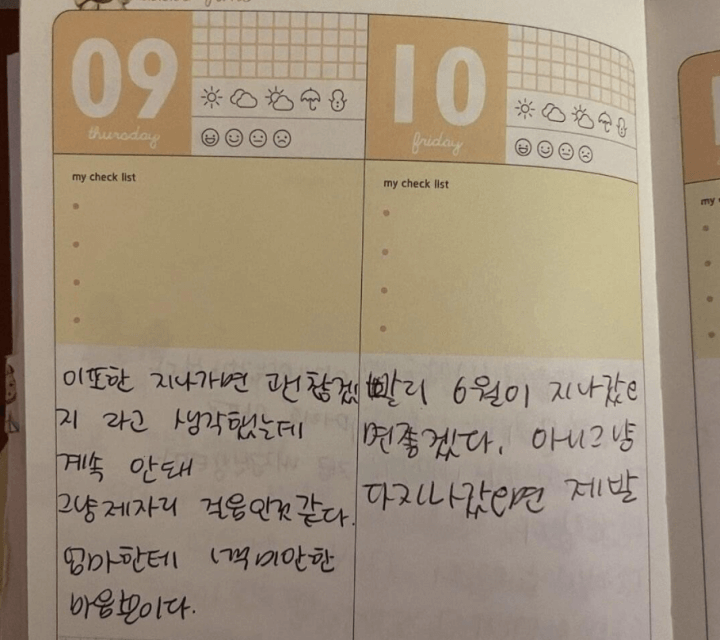 09
thursday
my check list
이또한 지나가면 괜찮겠
지 라고 생각했는데
계속 안돼
그냥제자리 걸음인것같다.
엄마한테 너무미안한
마음뿐이다.
10
friday
my check list
빨리 6월이 지나갔으
면좋겠다. 아니그냥
다지나갔으면 제발
my